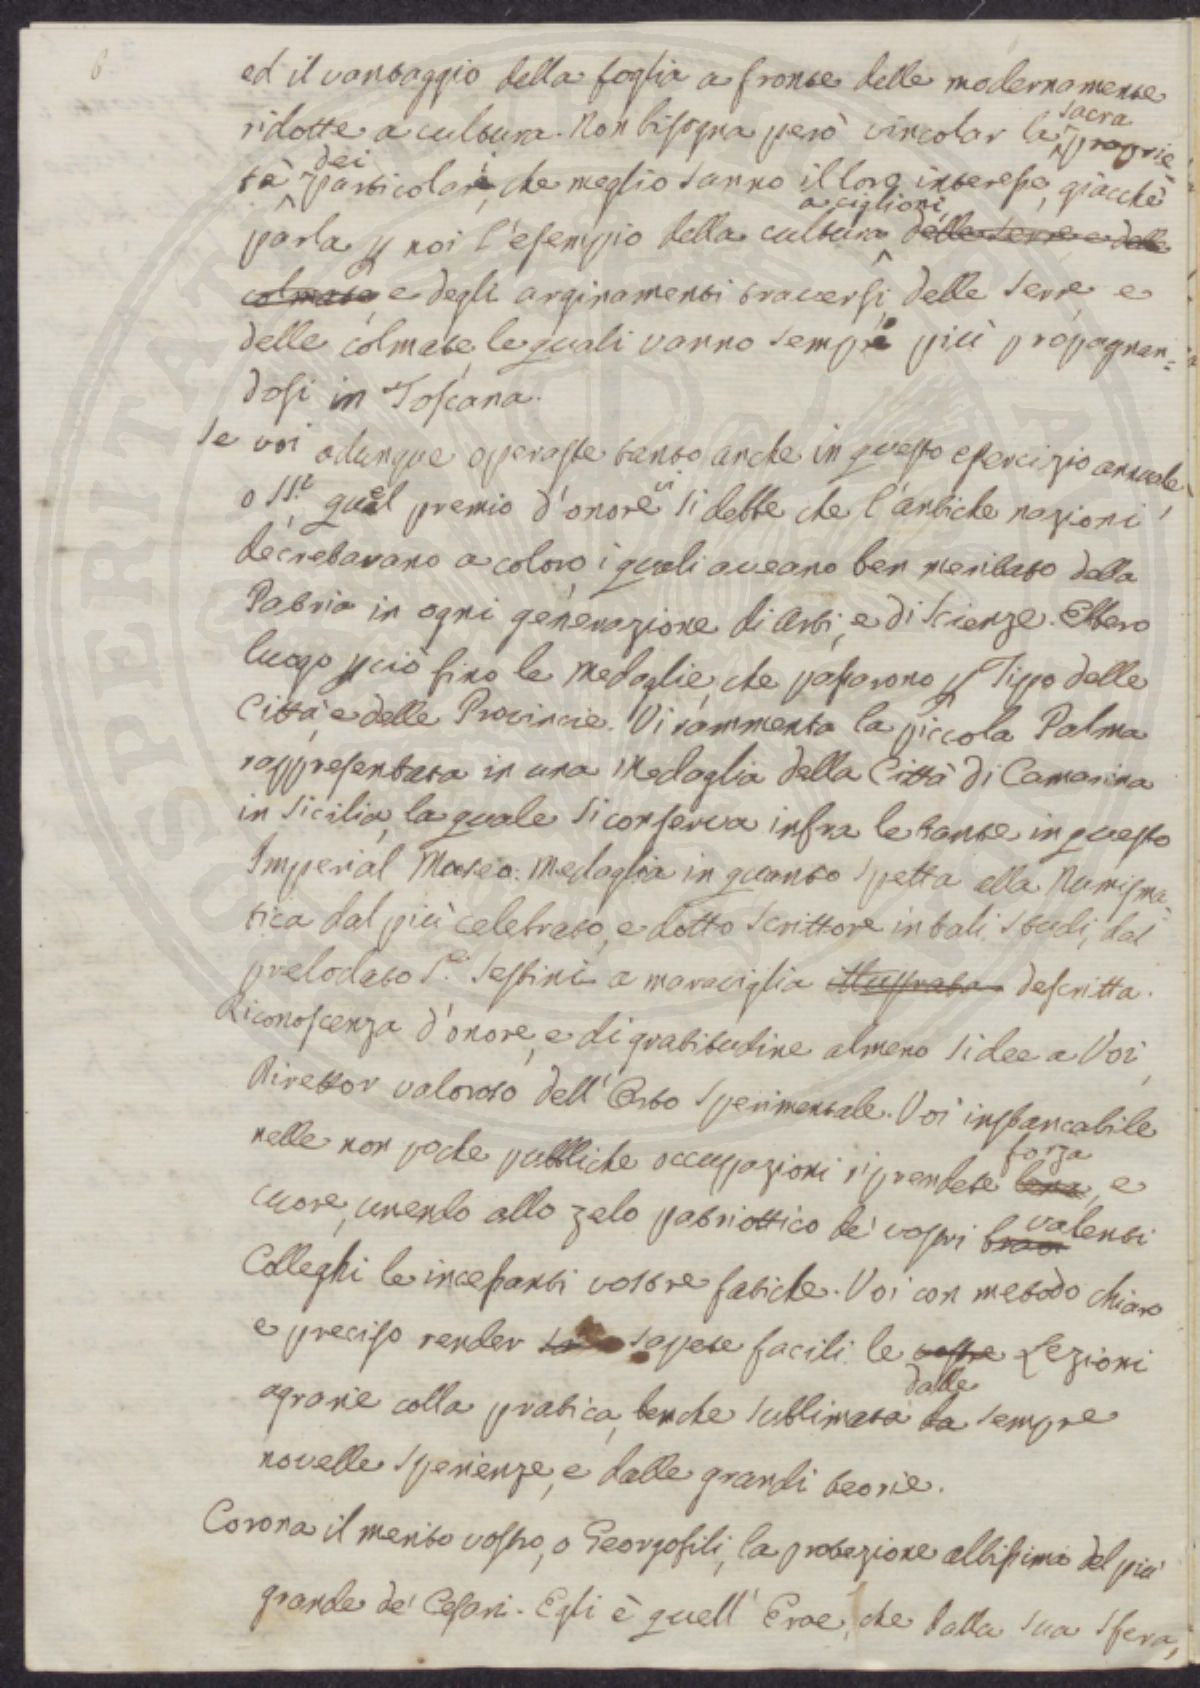 6
ed il vantaggio della foglia a fronte delle modernamente
ridotte a cultura. Non bisogna però vincolar la sacra proprie
tà dei particolari, che meglio sanno il loro interesse, giacchè
parla p noi l'esempio della cultura a ciglioni, delle serre e delle
colmate, e degli arginamenti traversi, delle serre e
delle colmate, le quali vanno sempre più propagnan=
dosi in Toscana.
Se voi adunque operaste tanto anche in questo esercizio annuale,
o SS.ri quel premio d'onore vi si debbe che l'antiche nazioni
decretavano a coloro, i quali aveano ben meritato della
Patria in ogni generazione di Arti, e di Scienze. Ebbero
luogo pciò fino le Medaglie, che passarono p Tipo delle
Città, e delle Provincie. Vi rammenta la piccola Palma
rappresentata in una Medaglia della Città di Camarina
in Sicilia, la quale si conserva infra le tante in questo
Imperial Museo: Medaglia in quanto spetta alla Numisma=
tica dal più celebrato, e dotto scrittore in tali studi, dal
prelodato S.r Sestini a maraviglia illustrata descritta.
Riconoscenza d'onore, e di gratitudine almeno si dee a Voi,
Direttor valoroso dell'Orto Sperimentale. Voi instancabile
nelle non poche pubbliche occupazioni riprendete lena forza, e
cuore, unendo allo zelo patriottico de' vostri bravi valenti
Colleghi le incessanti vostre fatiche. Voi con metodo chiaro
e preciso render sapete facili le vostre Lezioni
agrarie colla pratica, benche sublimata da dalle sempre
novelle sperienze, e dalle grandi teorie.
Corona il merito vostro, o Georgofili, la protezione altissima del più
grande de' Cesari. Egli è quell'Eroe, che dalla sua sfera,